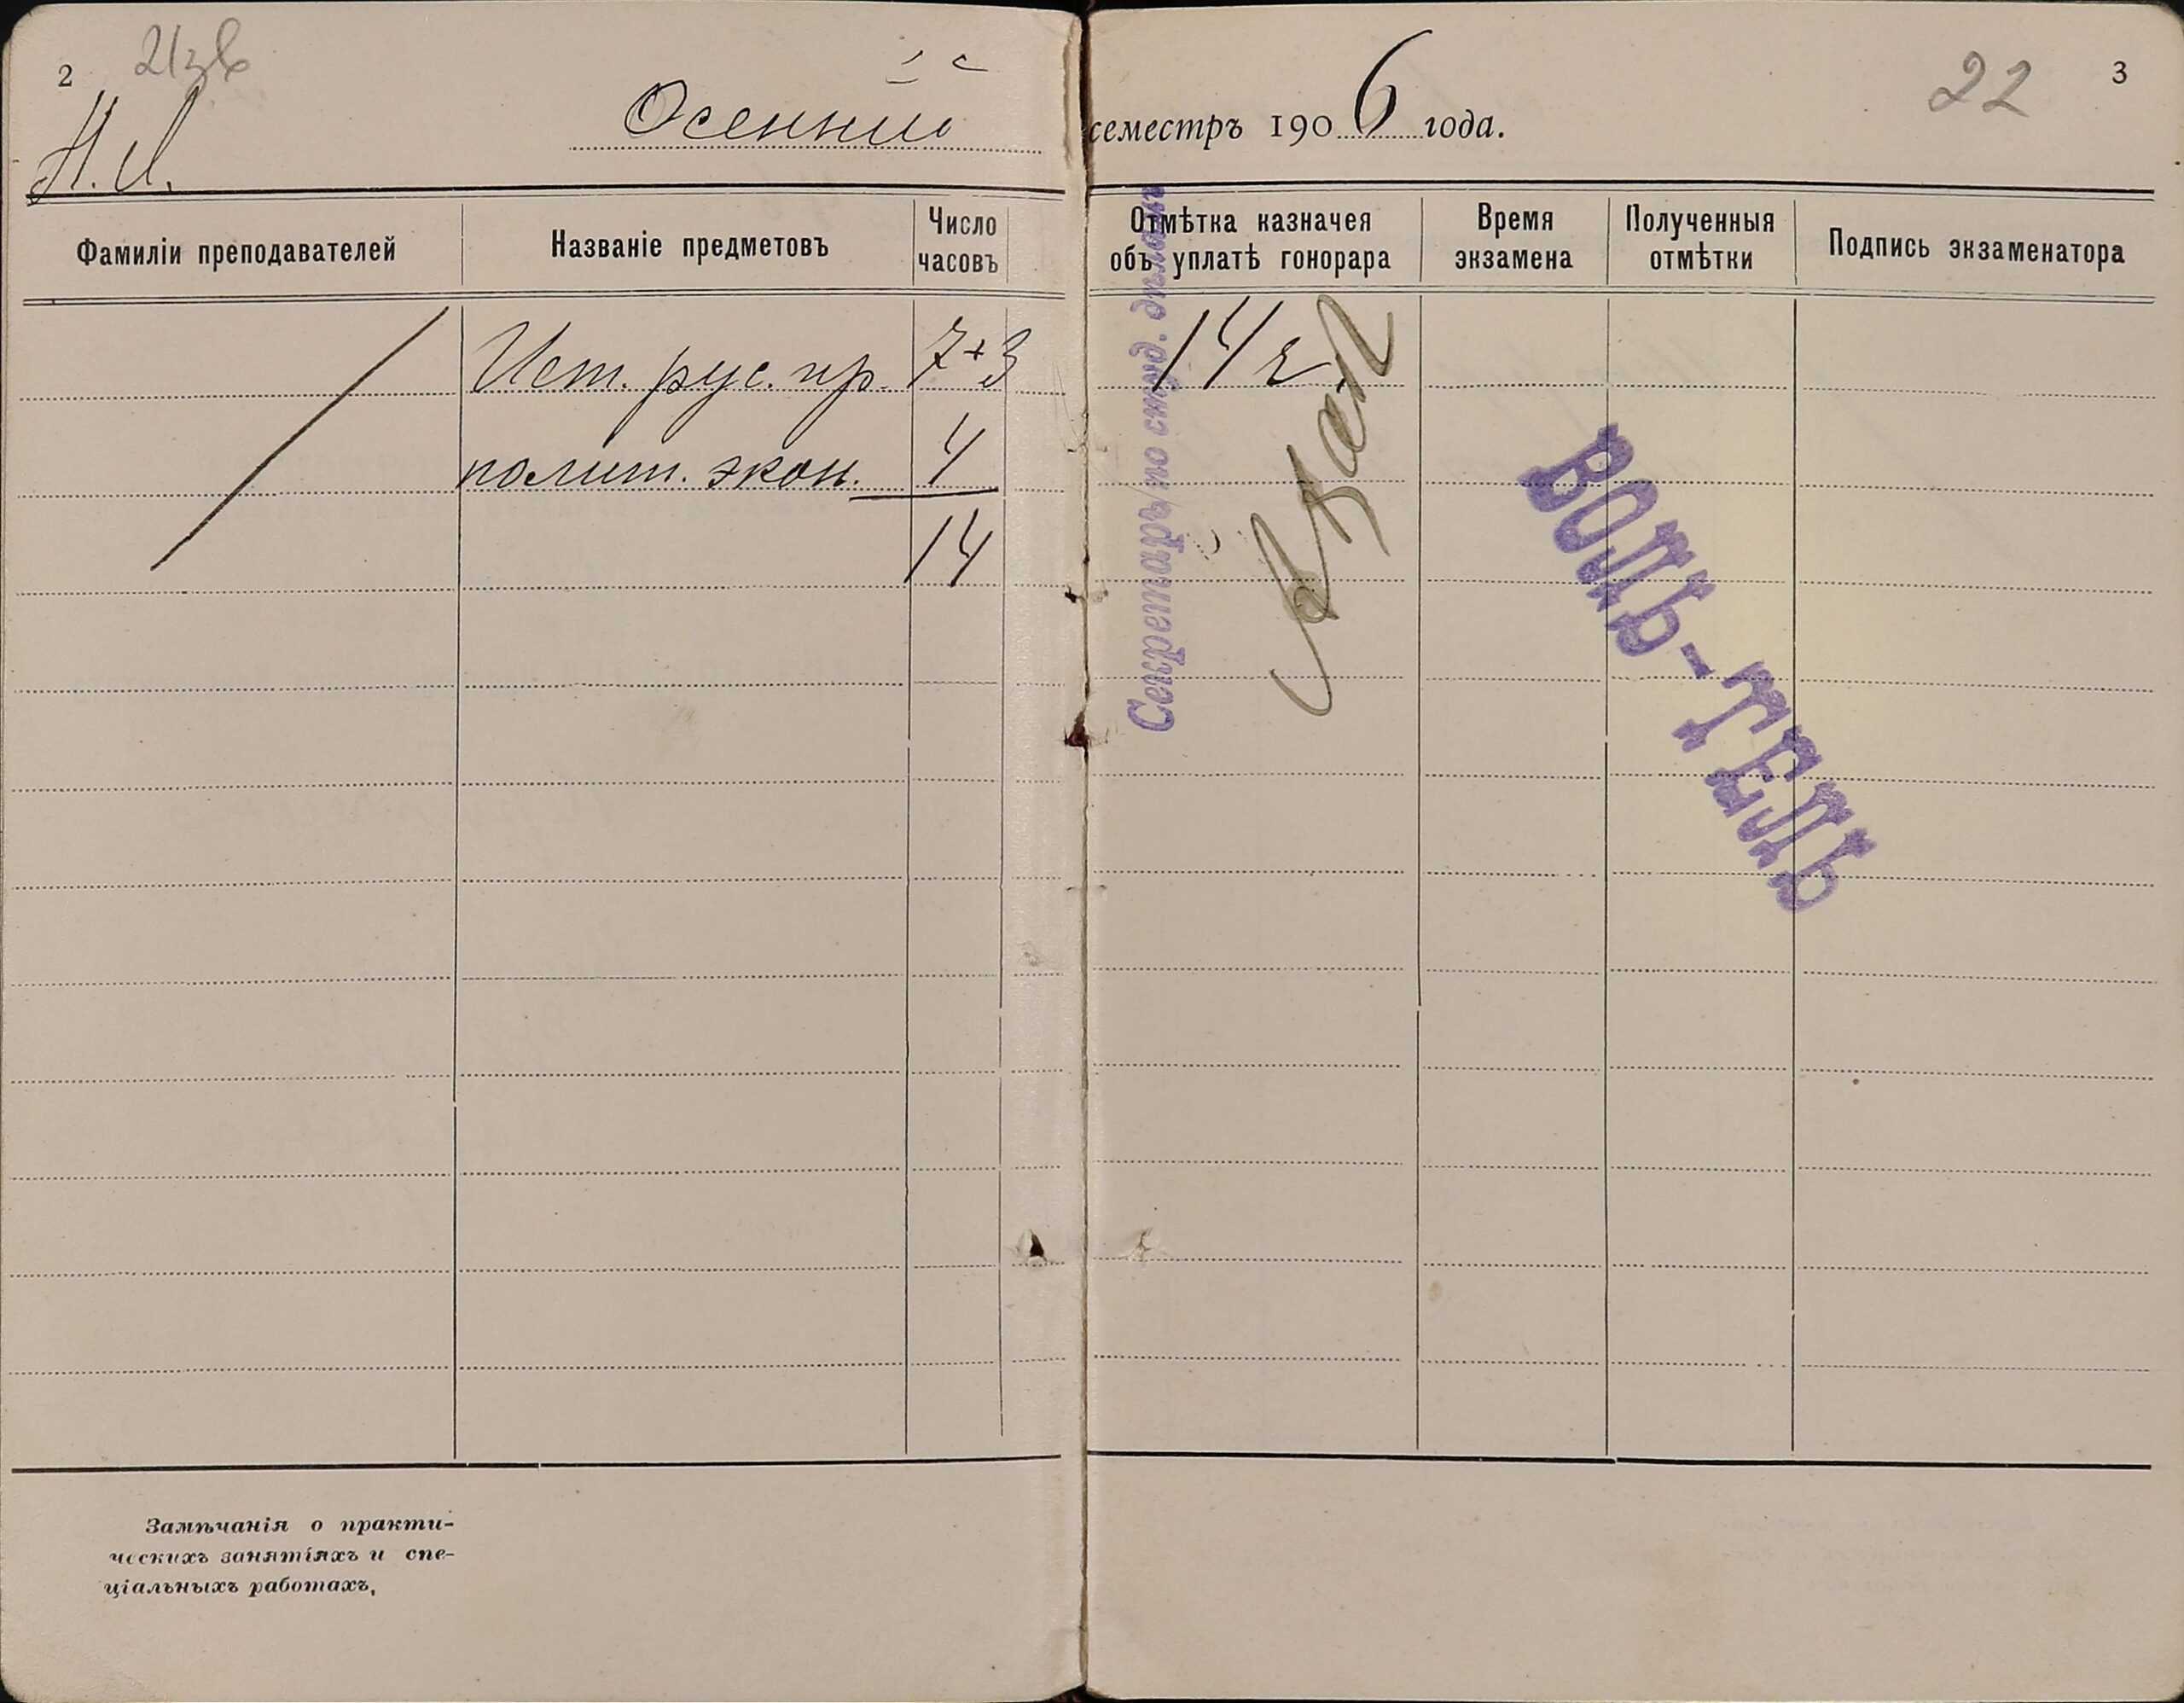 2
Осенній
семестръ 1906 года.
22
3
Н. И.
Фамиліи преподавателей
Названіе предметовъ
Число часовъ
Отмѣтка казначея
объ уплатѣ гонорара
Время
экзамена
Полученныя
отмѣтки
Подпись экзаменатора
Ист. рус. пр. 7+3
14 г.
полит. экон. 4
14
Секретарь по студ. дѣламъ
ВОЛЬ-ТЕЛЬ
Замѣчанія о практи-
ческихъ занятіяхъ и спе-
ціальныхъ работахъ,